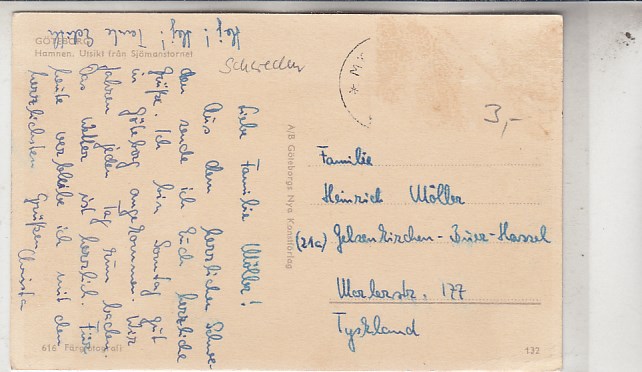 GÖTEBORG
Hamnen. Utsikt från Sjömanstornet
Hej! Hej! Tante Edith
Schweden
3,-
Liebe Familie Möller!
Aus dem herrlichen Schwe-
den sende ich Euch herzliche
Grüße. Ich bin Sonntag gut
in Göteborg angekommen. Wir
fahren jeden Tag zum baden.
Das Wetter ist herrlich. Für
heute verbleibe ich mit den
herzlichsten Grüßen Christa
A/B Göteborgs Nya Konstförlag
Familie
Heinrich Möller
(21a) Gelsenkirchen-Buer-Hassel
Marlerstr. 177
Tyskland
616 Färgfotografi
132